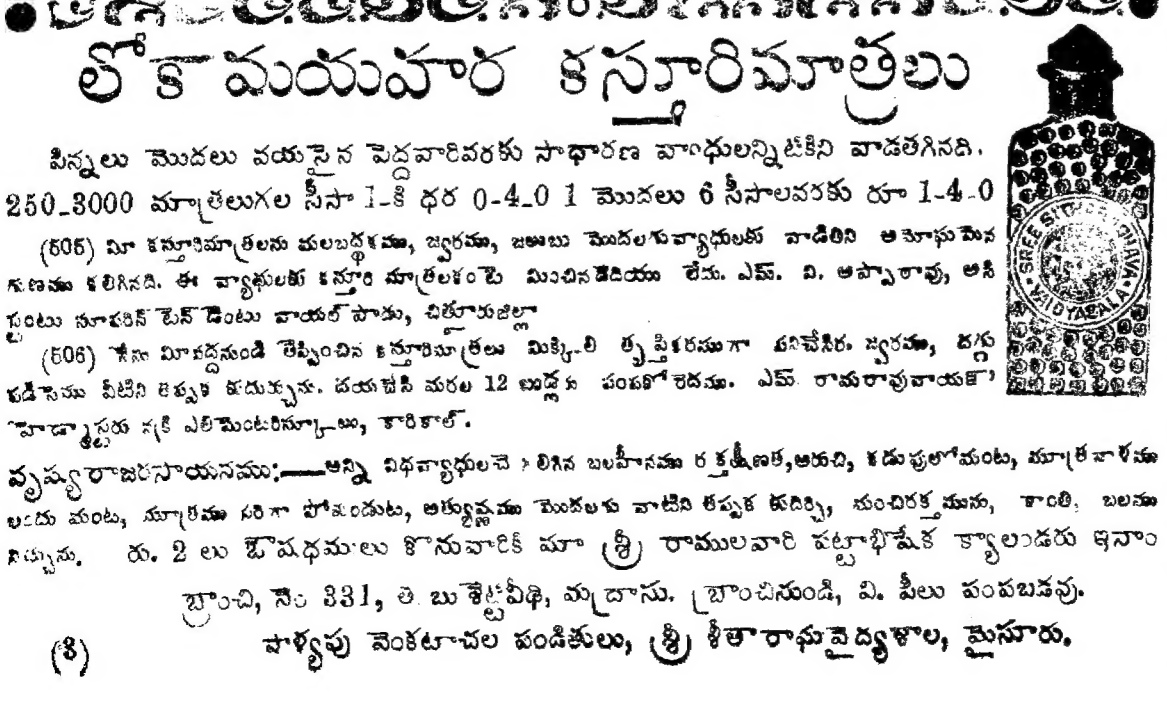 లోకామయహర కస్తూరిమాత్రలు
పిన్నలు మొదలు వయసైన పెద్దవారివరకు సాధారణ వ్యాధులన్నిటికిని వాడతగినది.
250-3000 మాత్రలుగల సీసా 1-కి ధర 0-4-0 1 మొదలు 6 సీసాలవరకు రూ 1-4-0
(505) మీ కస్తూరిమాత్రలను మలబద్ధకము, జ్వరము, జలుబు మొదలగువ్యాధులకు వాడితిని అమోఘమైన
గుణము కలిగినది. ఈ వ్యాధులకు కస్తూరి మాత్రలకంటె మించినదేదియు లేదు. ఎమ్. వి. అప్పారావు, అసి
స్టంటు సూపరిన్ టెన్ డెంటు వాయల్ పాడు, చిత్తూరుజిల్లా
(506) నేను మీవద్దనుండి తెప్పించిన కస్తూరిమాత్రలు మిక్కిలి తృప్తికరముగా పనిచేసిన. జ్వరము, దగ్గు
పడిసెము వీటిని తప్పక కుదుర్చును. దయచేసి మరల 12 బుడ్లకు పంపకోరెదము. ఎమ్ రామారావునాయకర్
హెడ్మాస్టరు ఎలిమెంటరిస్కూలు, కారికాల్.
వృష్యరాజరసాయనము:—అన్ని విధవ్యాధులచే కలిగిన బలహీనము రక్తక్షీణత, అరుచి, కడుపులోమంట, మూత్రనాళము
లందు మంట, మూత్రము సరిగా పోకుండుట, అత్యుష్ణము మొదలగు వాటిని తప్పక కుదిర్చి, మంచిరక్తమును, కాంతి, బలము
నిచ్చును. రు. 2 లు ఔషధములు కొనువారికి మా శ్రీ రాములవారి పట్టాభిషేక క్యాలండరు ఇనాం
బ్రాంచి, నెం 331, తి బు శెట్టివీథి, మద్రాసు. బ్రాంచినుండి, వి. పీలు పంపబడవు.
(8) పాళ్యపు వెంకటాచల పండితులు, శ్రీ శీతారాఘవవైద్యశాల, మైసూరు.
SREE SITHARAGHAVA VAIDYASALA